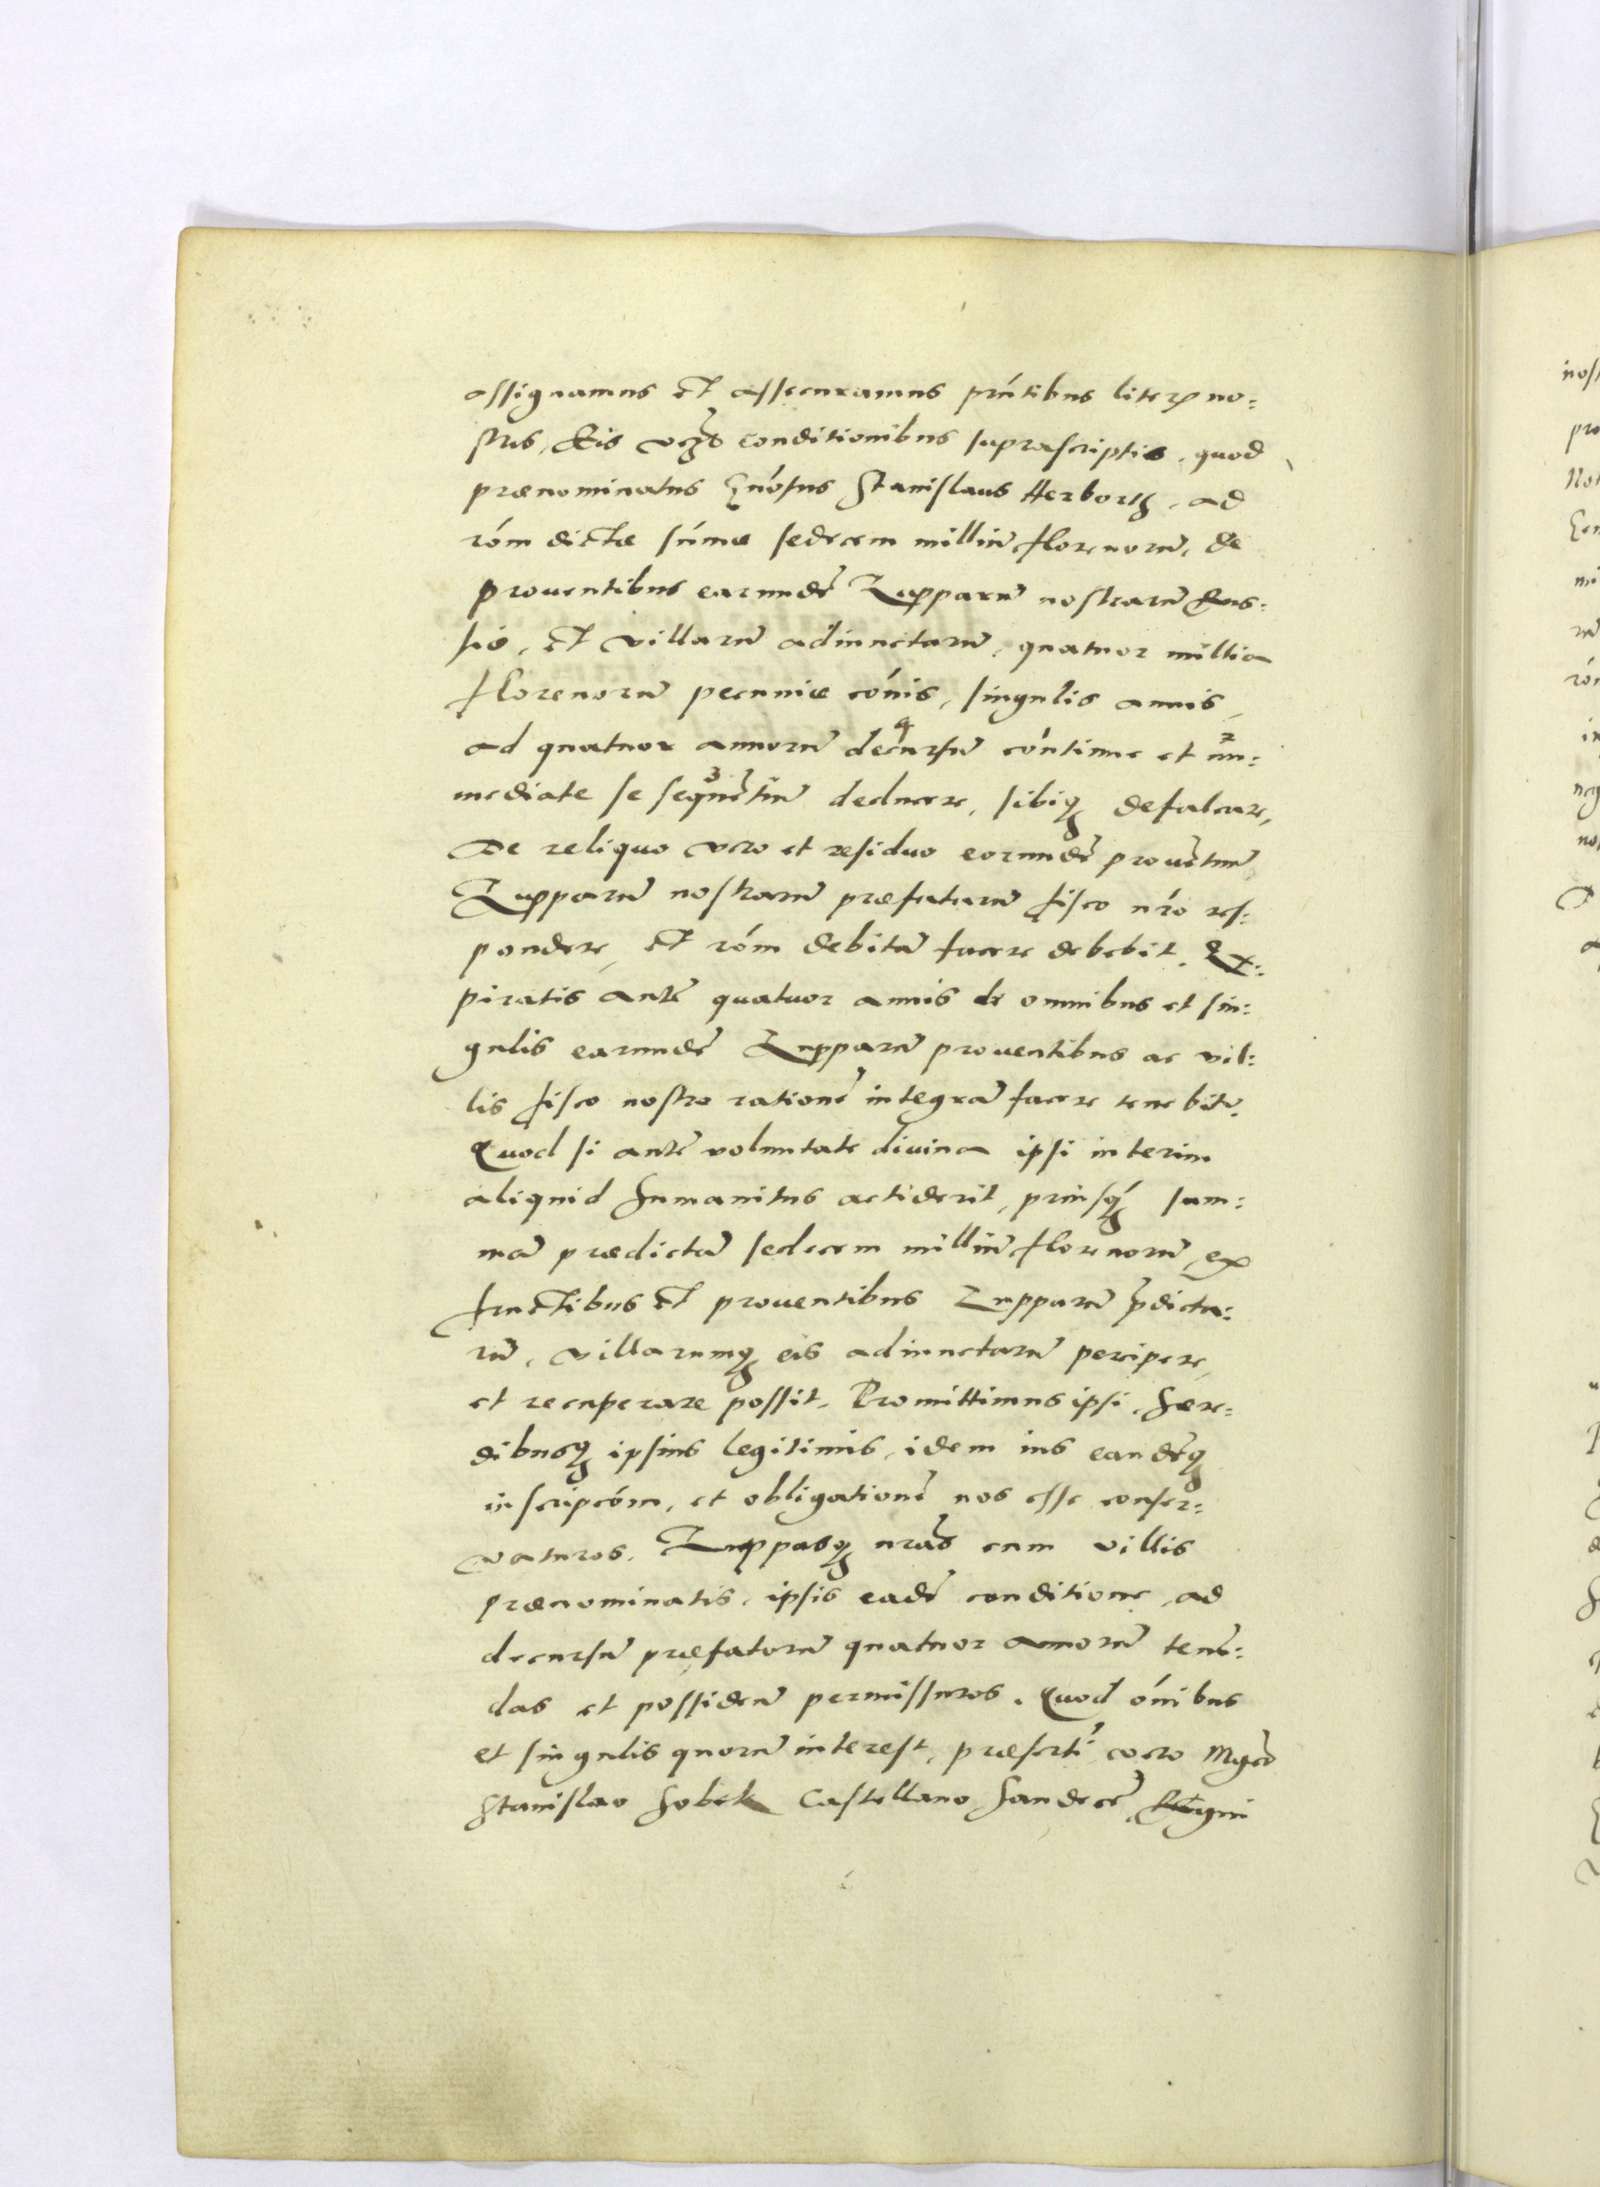 assignamus et assecuramus prńtibus literꝭ no:
stris, Eis vczͤ conditionibus suprascriptis, quod
prænominatus Gnósus Stanislaus Herborth, ad
róm dictæ súmæ sedecem milliũ florenorũ, de
prouentibus earundẽ Zupparũ nostrarũ Rus:
siæ, et villarũ adiunctarũ, quatuor millia
florenorũ pecuniæ cóńis, singulis annis,
ad quatuor annorũ decursũ cóntinue et im:
mediate se sequẽtiũ deducere, sibiqꝫ defalcare,
De reliquo vero et residuo eorundẽ prouẽtuũ
Zupparũ nostrarũ præfatarũ fisco nŕo res:
pondere, et róm debitã facere debebit. Ex:
piratis autẽ quatuor annis de omnibus et sin:
gulis earundẽ Zupparũ prouentibus ac vil:
lis fisco nostro rationẽ integrã facere tenebit̃.
Quod si autẽ voluntate diuina ipsi interim
aliquid humanitus actiderit, priusq́ꝫ sum:
mã prædictã sedecem milliũ florenorũ, ex
fructibus et prouentibus Zupparũ p̃dicta:
rũ, villarumqꝫ eis adiunctarũ percipere,
et recuperare possit. Promittimus ipsi, hære:
dibusqꝫ ipsius legitimis, idem ius eandẽqꝫ
inscripcóm, et obligationẽ nos esse conser:
vaturos. Zuppasqꝫ nr̃as cum villis
prænominatis, ipsis eadẽ conditione, ad
decursũ præfatorũ quatuor annorũ tenẽ:
das et possidẽdas permissuros. Quod ónibus
et singulis quorũ interest, præsertĩ vero Mgco
Stanislao Sobek Castellano Sandecẽ, Regni